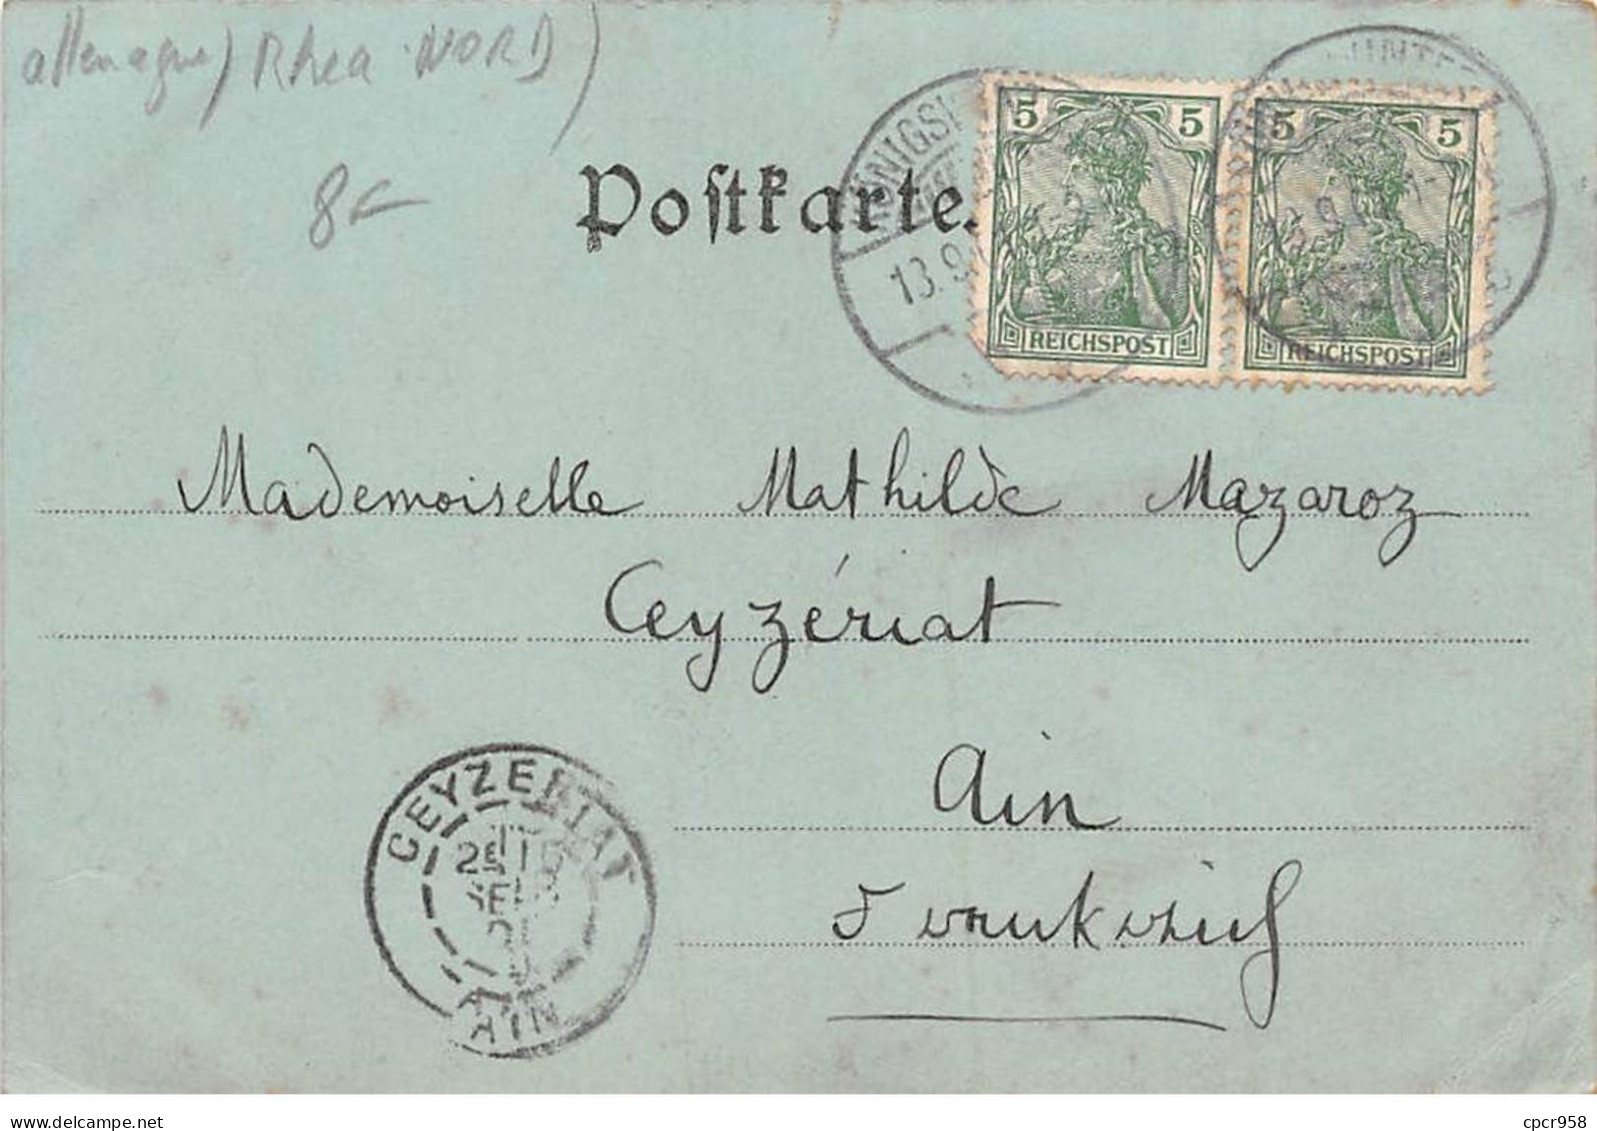 allemagne) Rhea NORD)
8€
Postkarte.
5 5
5 5
13.9
REICHSPOST
REICHSPOST
Mademoiselle Mathilde Mazaroz
Ceyzériat
Ain
Frankreich
CEYZERIAT
AIN
delcampe.net
cpcr958